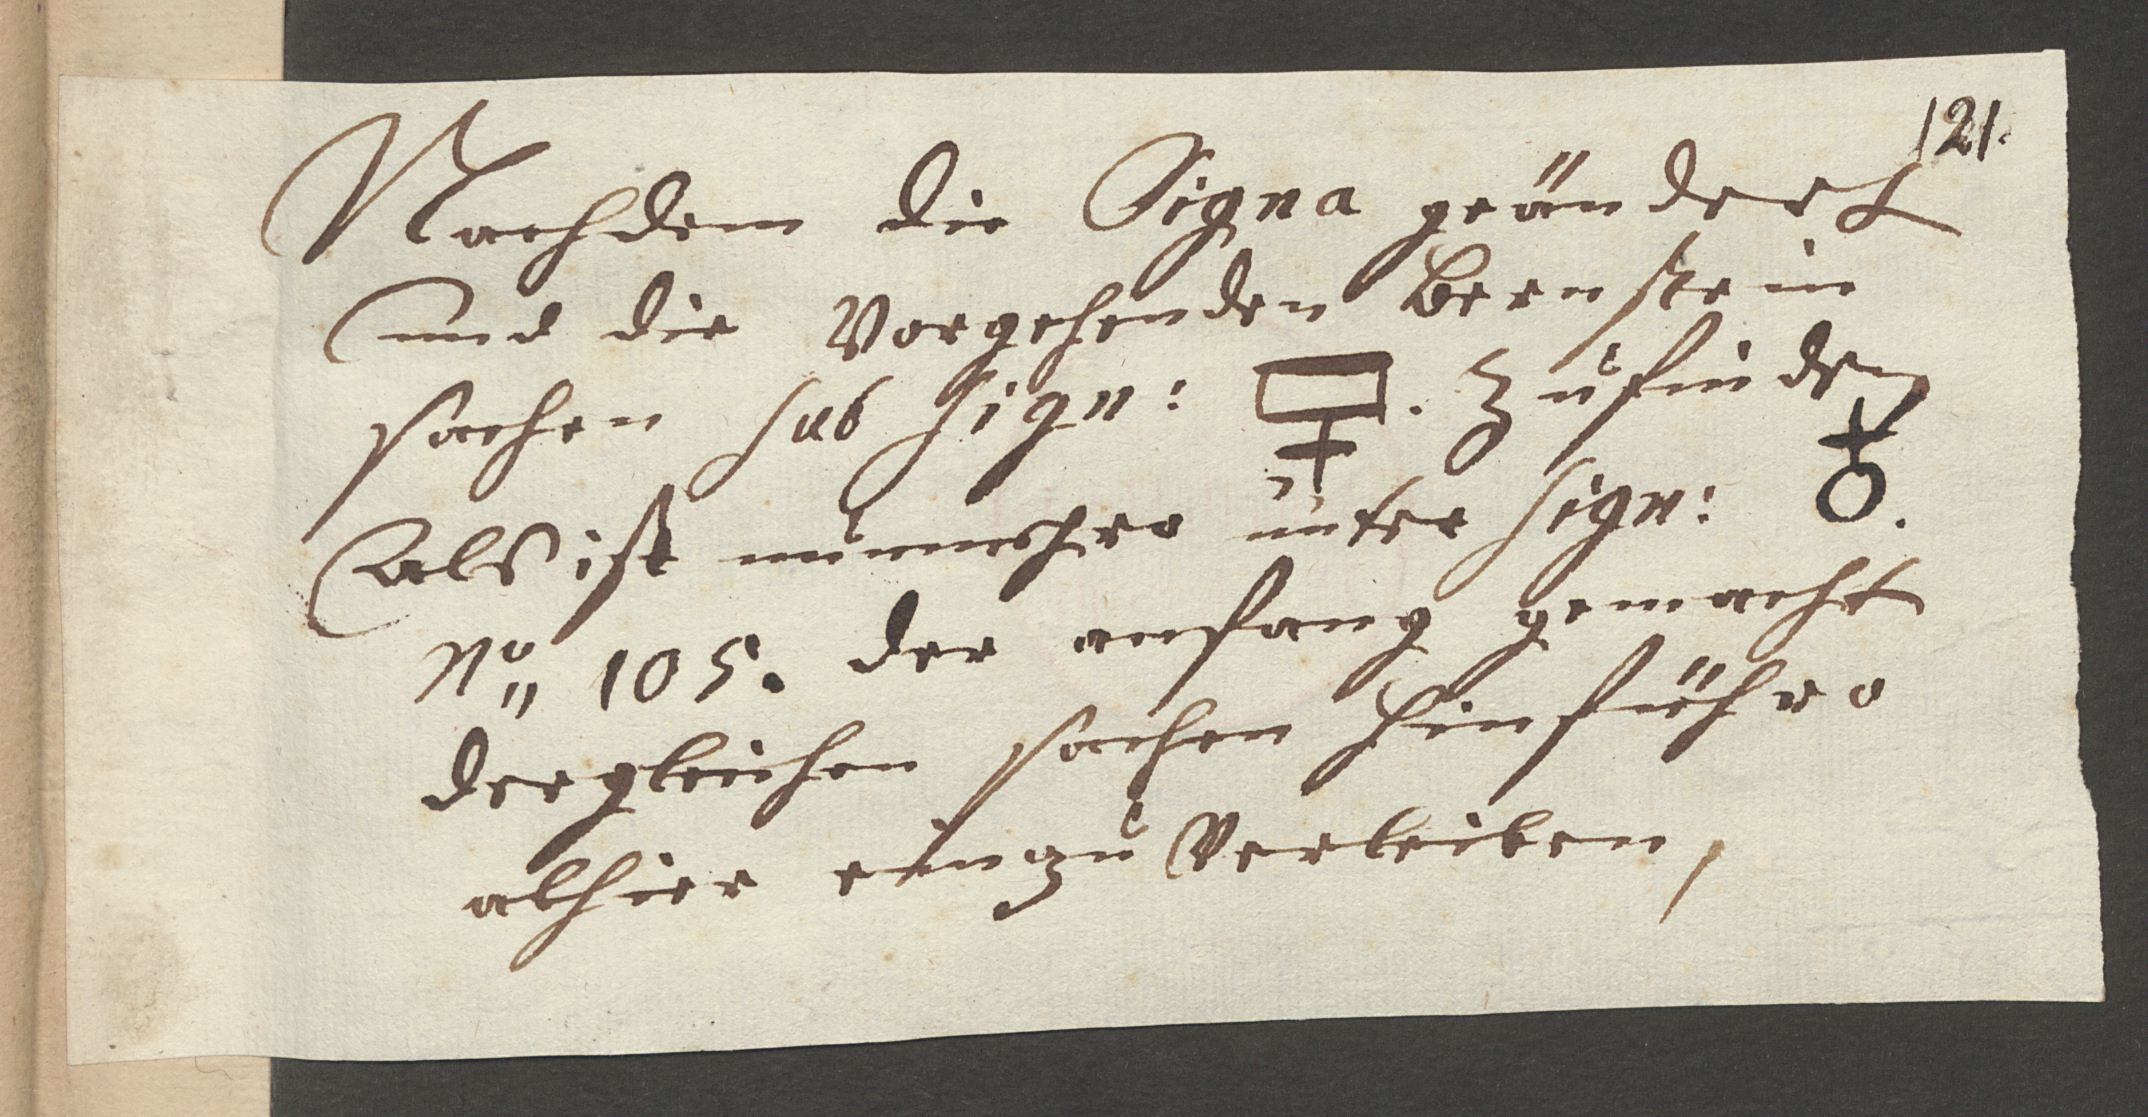 121.
Nachdem die Signa geändert
und die Vorgehenden Bernstein
sachen sub sign: . zufinden
als ist nunmehro unter sign: ♁.
No 105. der anfang gemacht
dergleichen sachen hinführo
alhier einzuverleiben,